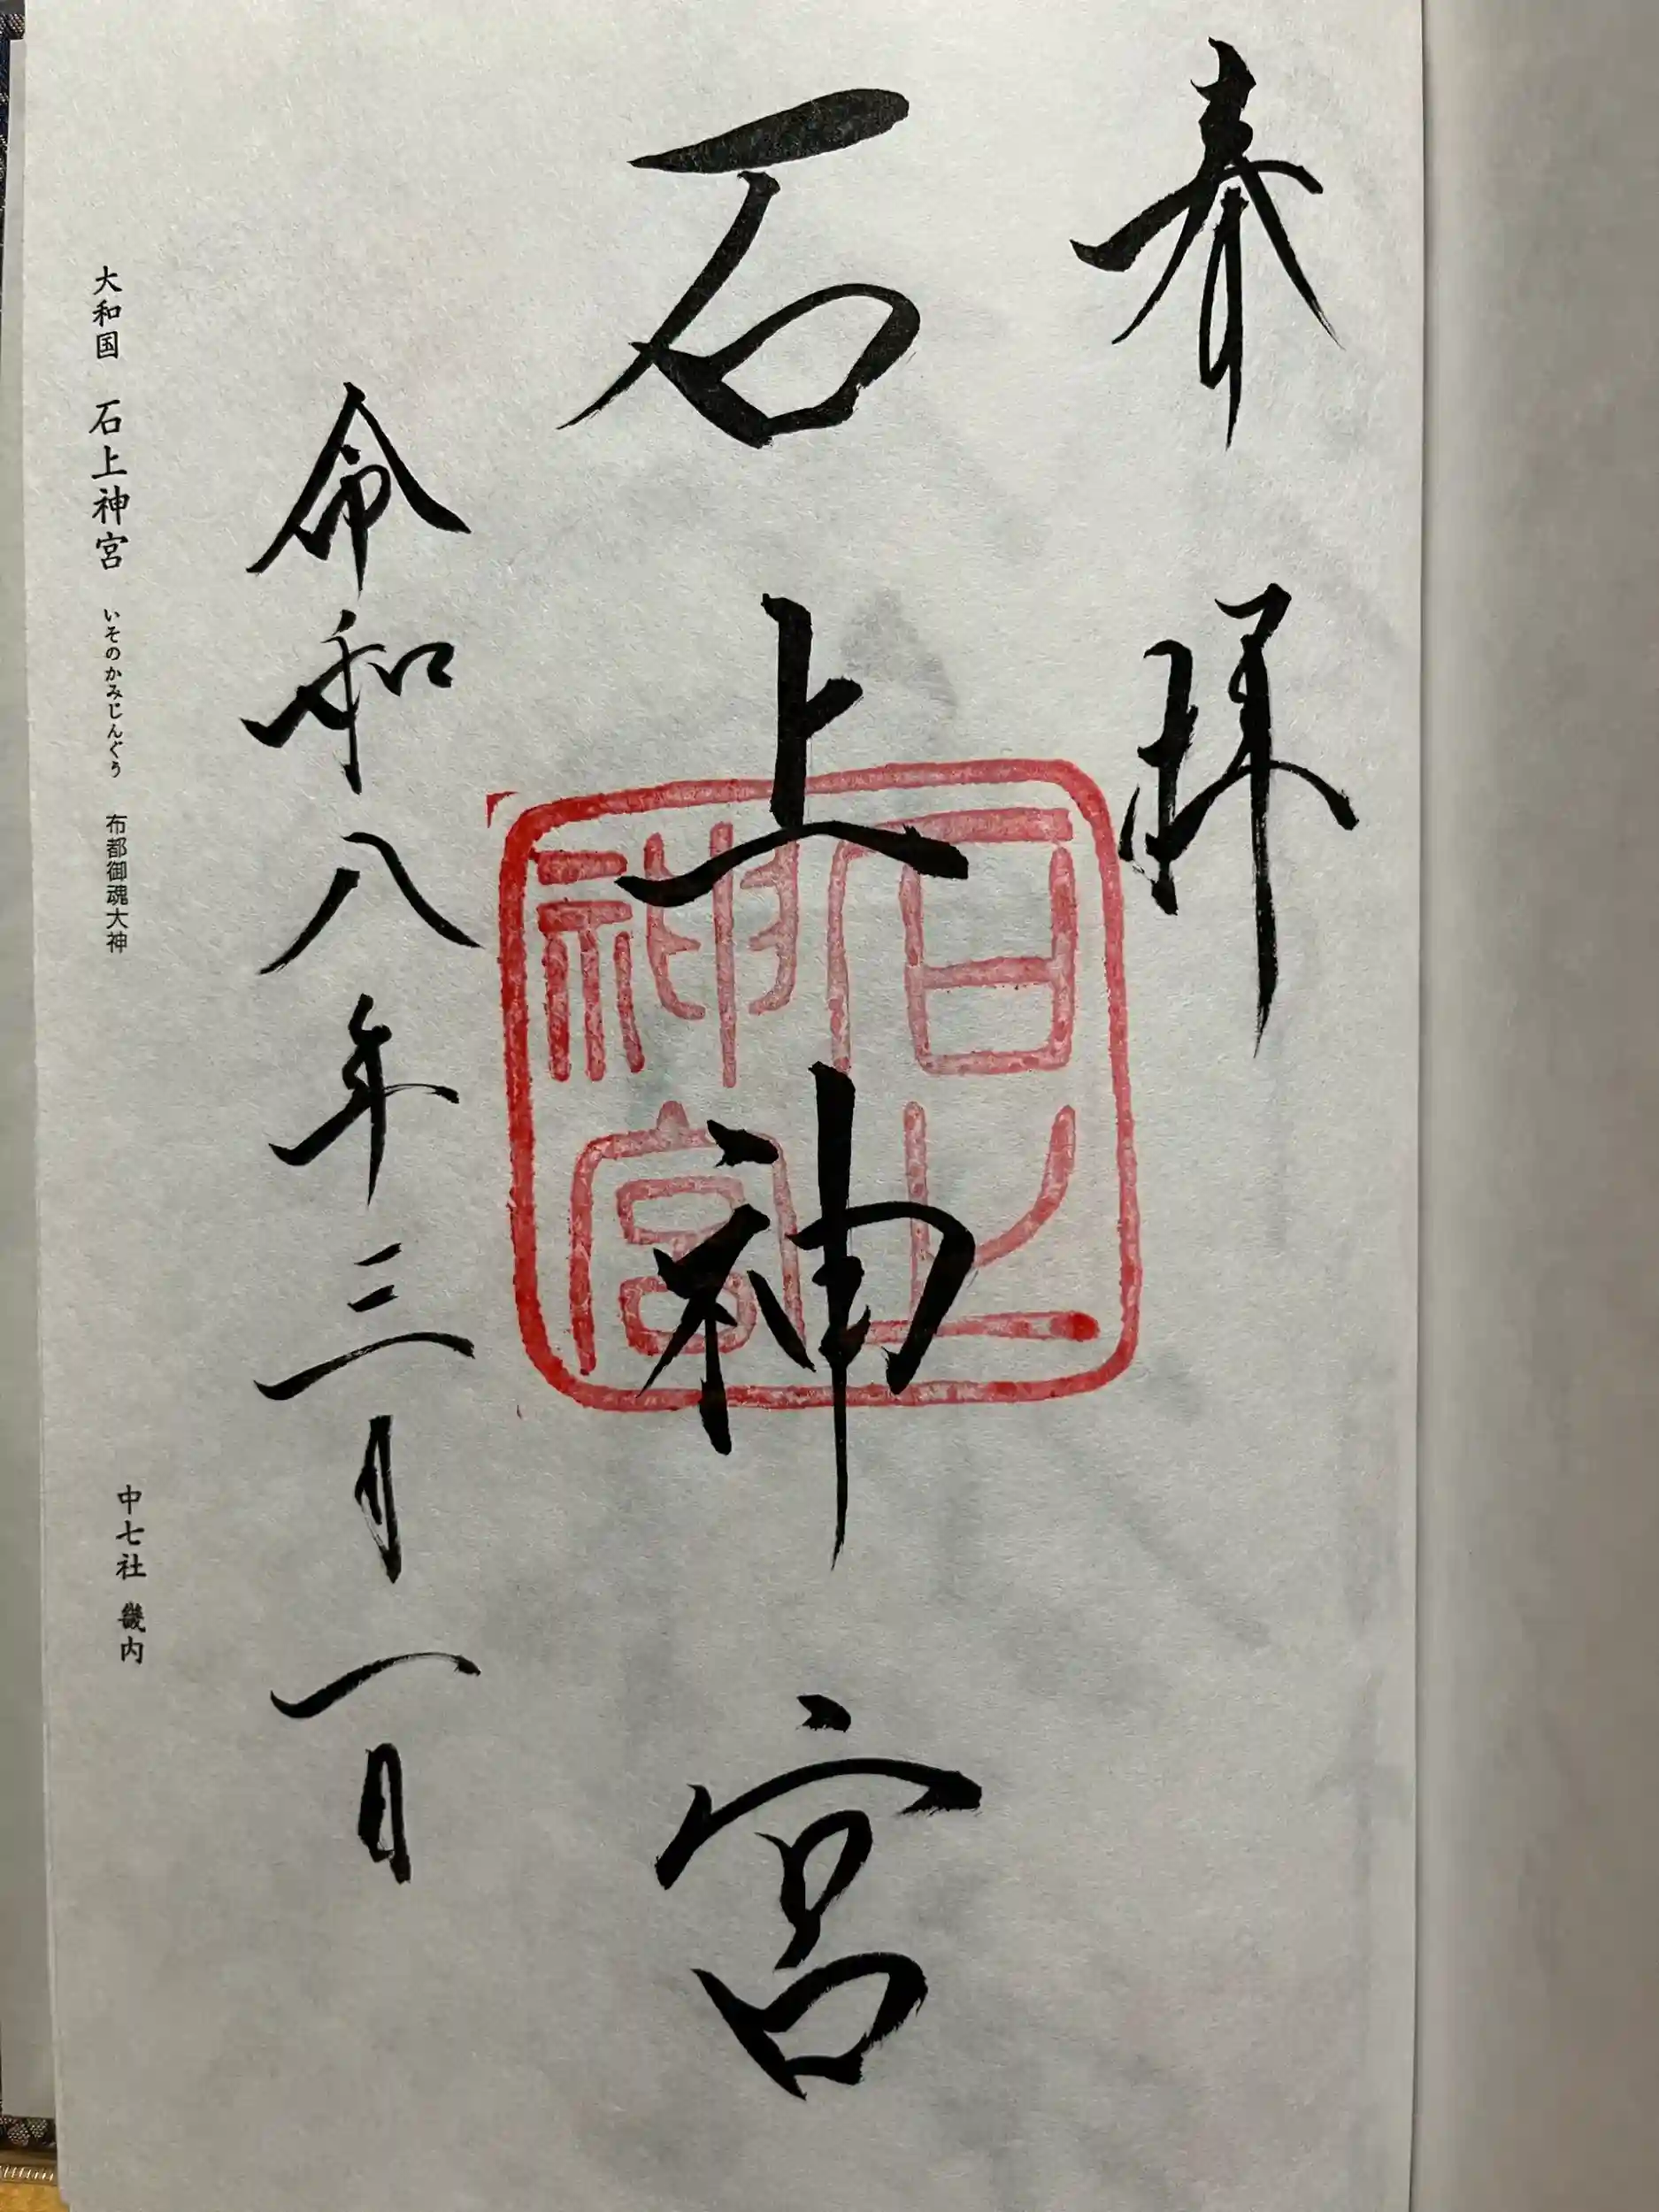 奉拝
石上神宮
石上神宮
令和八年三月一日
大和国 石上神宮 いそのかみじんぐう 布都御魂大神
中七社 畿内